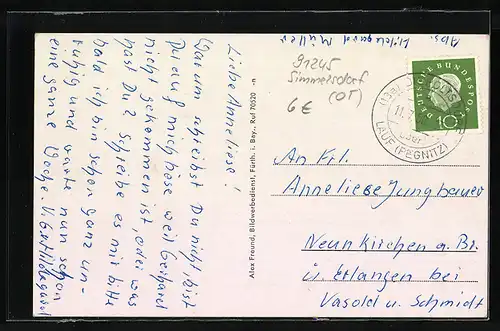 Abs. Hildegard Müller
91245
Simmelsdorf
(OT)
6€
DEUTSCHE BUNDESPOST
10
LAUF (PEGNITZ)
Liebe Anneliese!
Warum schreibst Du nicht, bist
Du auf mich böse weil Gerhard
nicht gekommen ist, oder was
hast Du? Schreibe es mir bitte
bald ich bin schon ganz un-
ruhig und warte nun schon
eine ganze Woche. V. Gr. Hildegard
Alex Freund, Bildwerbedienst, Fürth. i. Bay., Ruf 70520
An Frl.
Anneliese Jungbauer
Neunkirchen a. Br.
ü. Erlangen bei
Vasold u. Schmidt